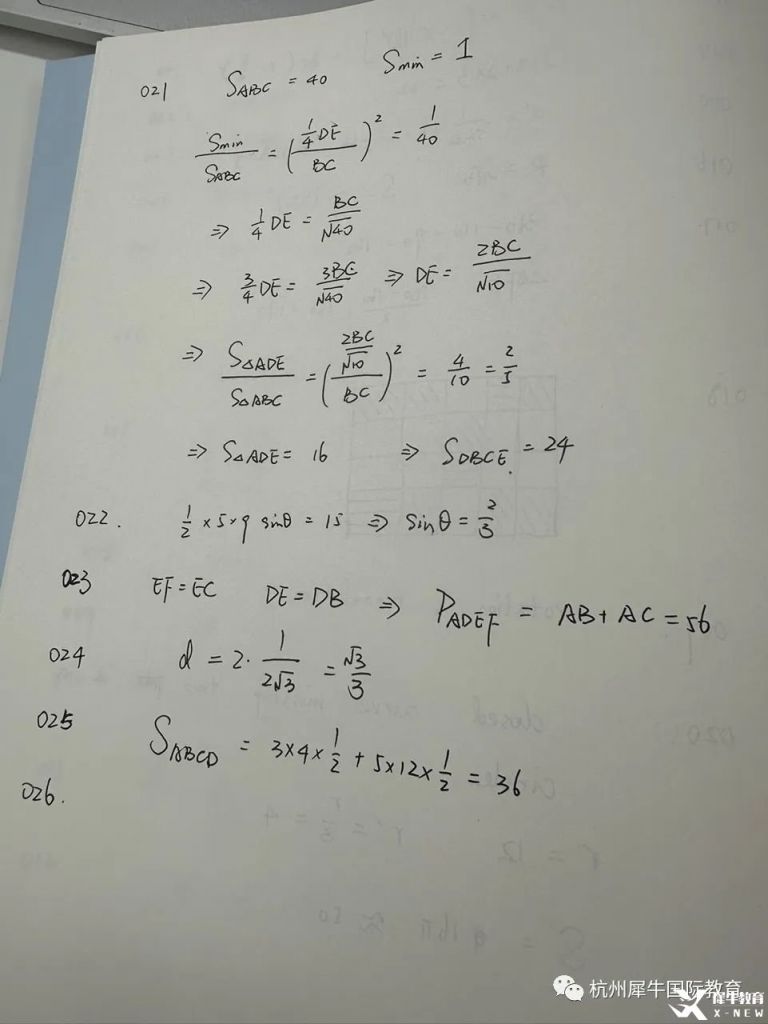 021 S_ABC = 40 S_min = 1
S_min/S_ABC = (1/4 DE / BC)² = 1/40
⇒ 1/4 DE = BC/√40
⇒ 3/4 DE = 3BC/√40 ⇒ DE = 2BC/√10
⇒ S△ADE/S△ABC = (2BC/√10 / BC)² = 4/10 = 2/5
⇒ S△ADE = 16 ⇒ S_DBCE = 24
022. 1/2 × 5 × 9 sinθ = 15 ⇒ sinθ = 2/3
023 EF = EC DE = DB ⇒ P_ADEF = AB + AC = 56
024 d = 2 · 1/2√3 = √3/3
025 S_ABCD = 3×4×1/2 + 5×12×1/2 = 36
026.
杭州犀牛国际教育
犀牛教育
X-NEW